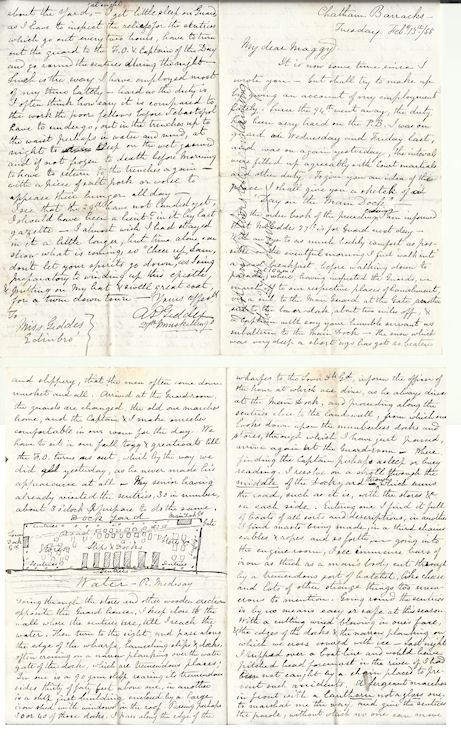 about the yards — I get little sleep on Guard
as I have to inspect the reliefs for the sentries
which go out every two hours, have to turn
out the guard to the F.O. & Captain of the Day
and go round the sentries during the night —
Such is the way I have employed most
of my time lately — hard as the duty is
I often think how easy it is compared to
the work the poor fellows before Sebastopol
have to undergo, out in the trenches up to
the waist perhaps in water and mud, at
night to sleep on the wet ground
and if not frozen to death before morning
to have to return to the trenches again —
with a piece of salt pork or worse to
appease their hunger all day —
I see by the 29th have not landed yet,
I should have been a lieut: in it by last
gazette — I almost wish I had stayed
in it a little longer, but time alone can
show what is coming, so "Cheer up, Sam,
dont let your spirits go down, as I am
preparatory to winding up this epistle
& putting on my hat & great coat,
for a turn down town — Yours affect
A. S. Geddes
27th Inniskillings
To
Miss Geddes
Edinbro
Chatham Barracks
Tuesday, Feb. 13th/55
My dear Maggy
It is now some time since I
wrote you — but shall try to make up
by giving an account of my employment
lately. Since the 94th went away, the duty
has been very hard on the P.B. I was on
guard on Wednesday and Friday last,
and was on again yesterday, the interval
was filled up agreeably with Court martials
and other duty. To give you an idea of this
place I shall give you a sketch of a
"Day on the Main Dock"
the order book of the preceding evening I am informed
that is for Guard next day —
to as much bodily comfort as pos-
sible the eventful morning I just walk into
a good breakfast, before walking down to
parade Having inspected the Guards, we
march off to our respective places of banishment,
to the Main Guard at the Gate another
to the lower dock about two miles off, &
a Captain with say your humble servant as
subaltern to the Main Dock — the snow which
was very deep a short ago has got so beaten
and slippery, that the men often come down
musket and all. Arrived at the Guardroom,
the guards are changed, the old one marches
home, and the Captain & I make ourselves
comfortable in our room for the day. We
have to sit in our full togs & greatcoats till
the F.O. turns us out, which by the way we
did not yesterday, as he never made his
appearance at all — My senior having
already visited the sentries, 30 in number,
about 3 o'clock I prepare to do the same.
Dock Yard
Sentries
Main Dock Gd.
Gate
Ships & Docks
Sentries
Sentries
Water — R. Medway
Going through the stores and other wooden erections
opposite the Guard houses, I keep close to the
wall where the sentries are, till I reach the
water. Then turn to the right, and pass along
the edge of the wharfs, launching slips & docks,
often crossing a narrow planking over the water
gate of the docks, which are tremendous places;
In one is a 90 gun ship rearing its tremendous
sides thirty or forty feet above me, in another
is a ship just building enclosed by a large
iron shed with windows in the roof. Passing perhaps
10 or 20 of these docks. I pass along the edge of the
wharfs to the Lower Dk Gd, inform the officer of
the hour at which we dine, as he always dines
at the Main Dock, and proceeding along the
sentries close to the landwall, from which one
looks down upon the numberless docks and
stores, through which I have just passed,
arrive again at the Guardroom — Where
finding the Captain perhaps asleep or busy
reading, I resolve on a stroll through the
middle of the Dockyard which
the road, such as it is, with the stores &c
on each side. Entering one I find it full
of boats of all sorts and descriptions, in another
I find masts being made, in a third chains
cables & ropes and so forth — or going into
the engine room, I see immense bars of
iron as thick as a man's body cut through
by a tremendous sort of hatchet, like cheese
and lots of other strange things too num-
erous to mention — Going round the sentries
is by no means easy or safe at this season
With a cutting wind blowing in ones face,
& the edges of the docks & the narrow planking on
which we cross covered with ice — Last night
I tripped over a boat line and would have
pitched head foremost in the river if I had
not caught by a chain placed to pre-
vent such accidents. A sergeant marches
in front with a lanthorn, not a glass one,
to marshal me the way, and give the sentries
the parole, without which no one can move